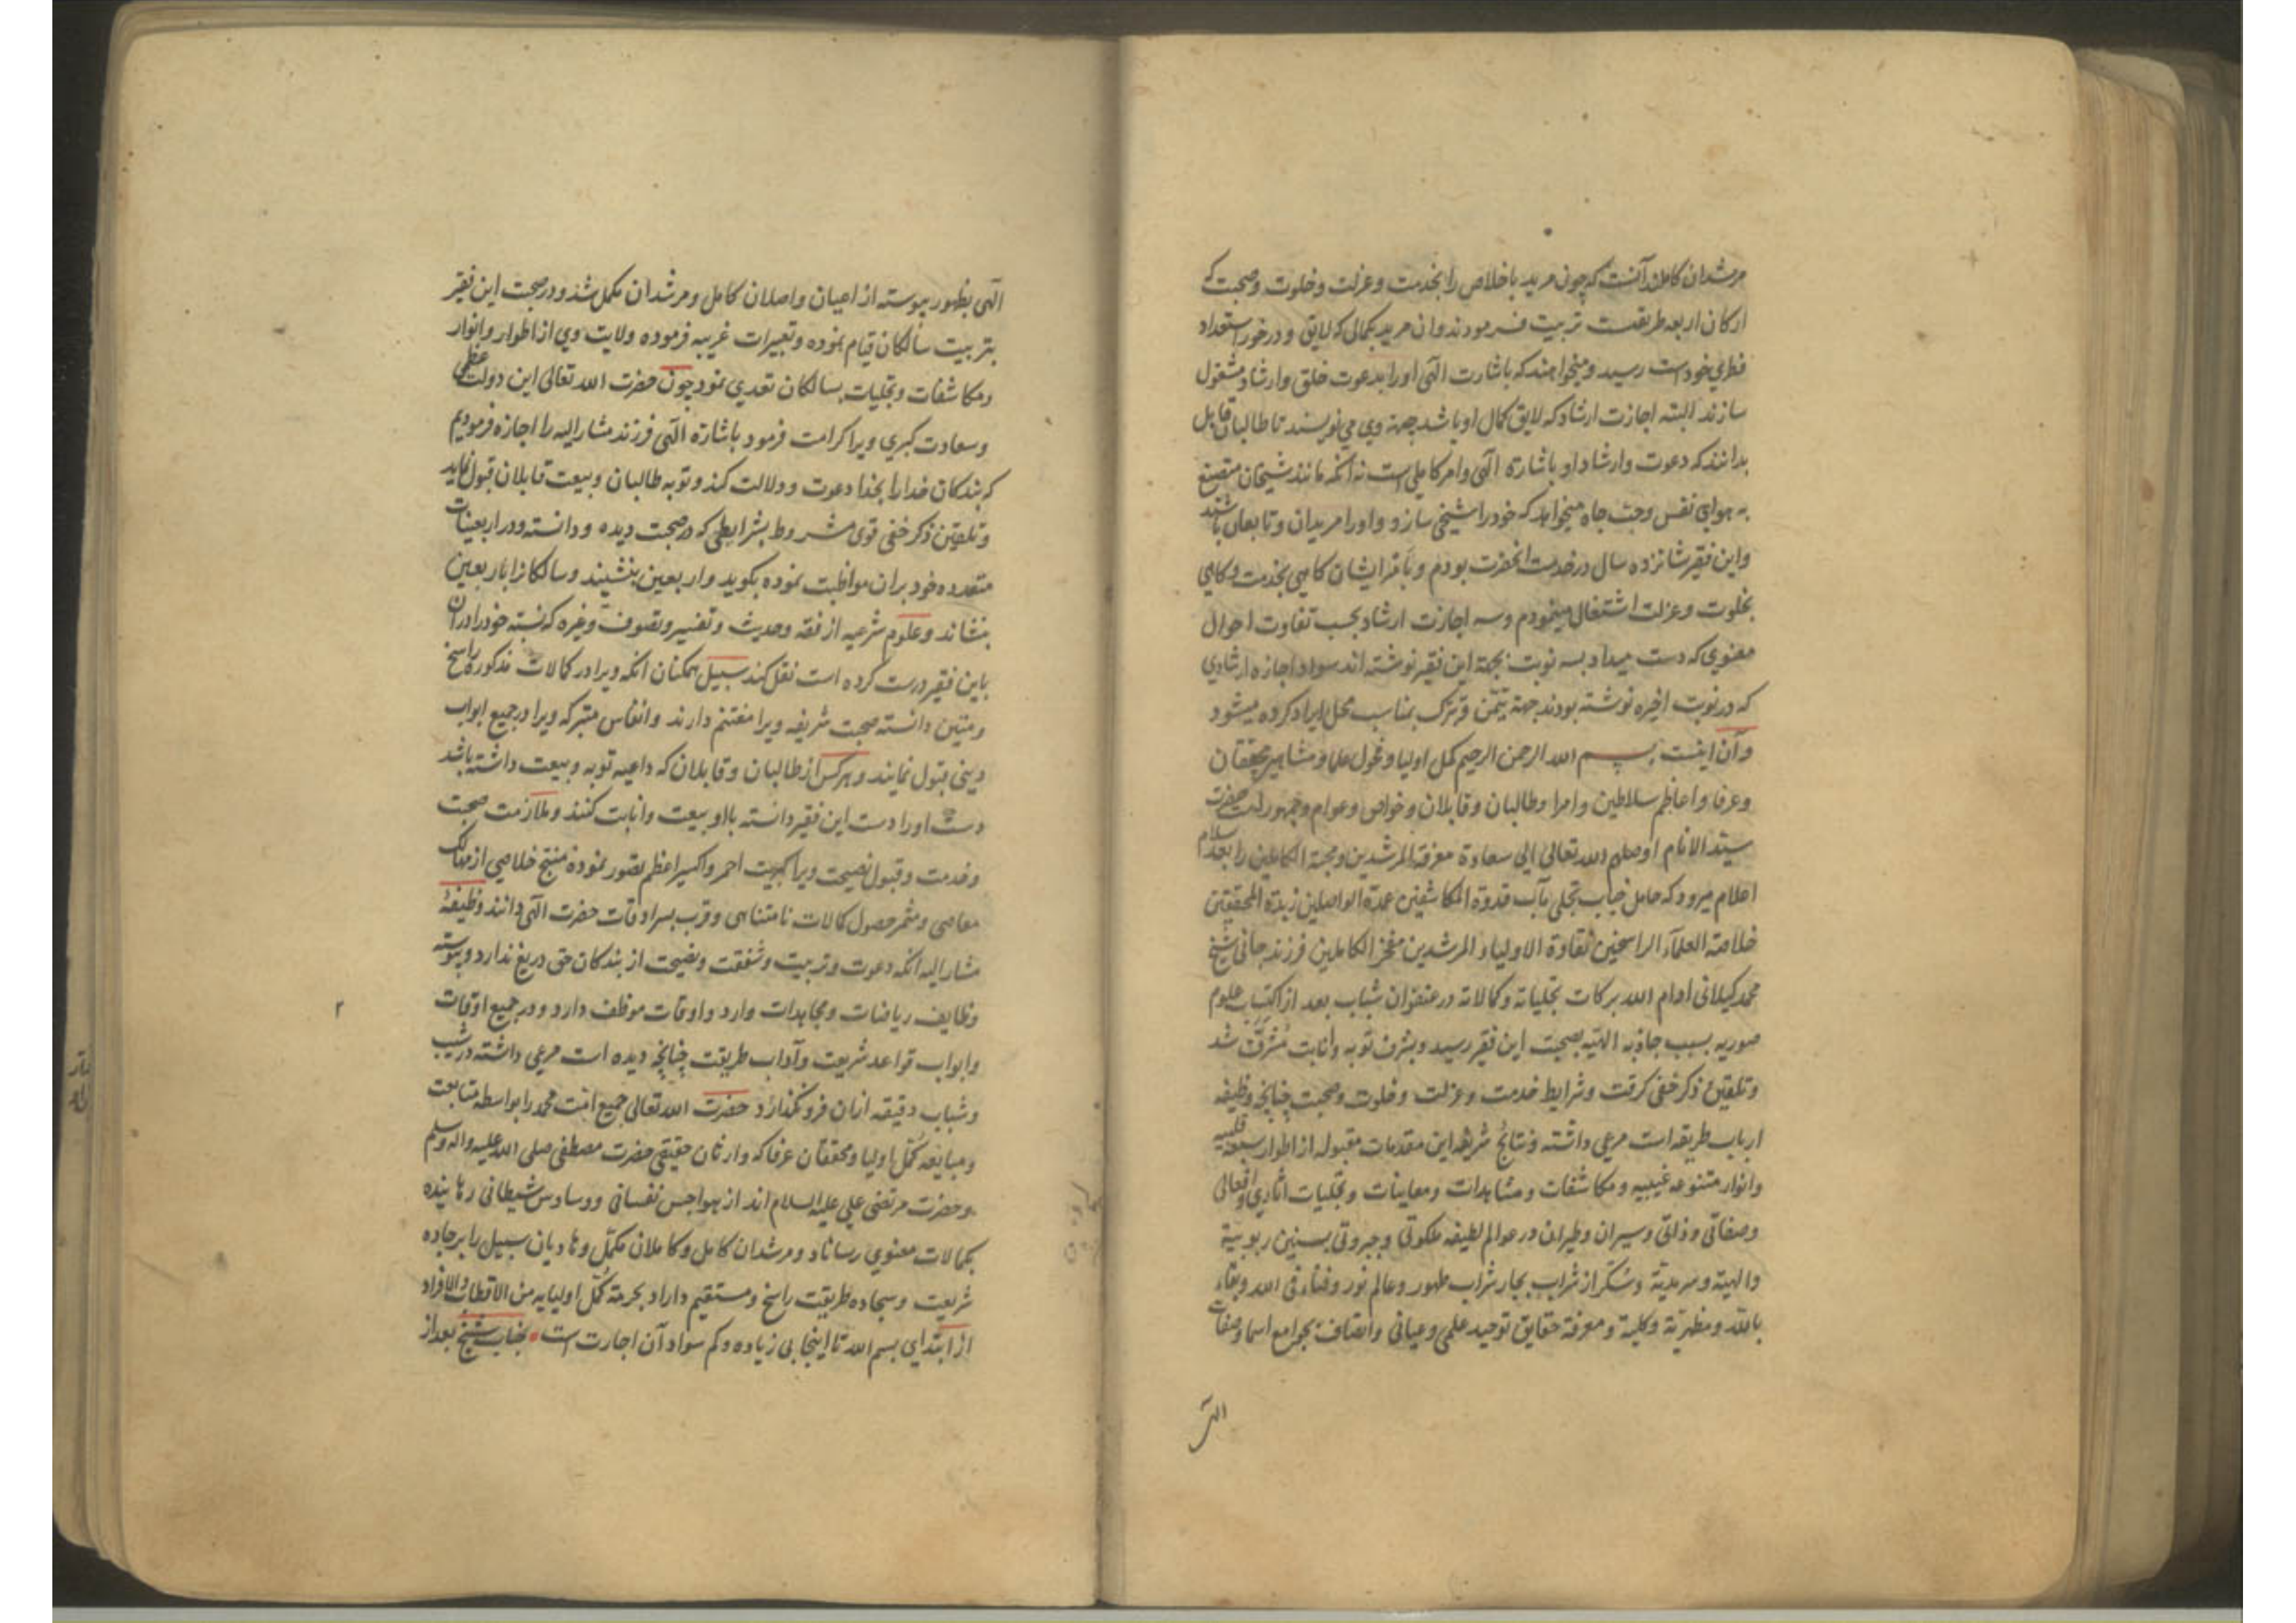 مرشدان کامل آنست که چون مرید باخلاص را بخدمت و عزلت و خلوت و صحبت که
ارکان اربعه طریقت تربیت فرمودند وان مرید بکمالی که لایق و درخور استعداد
فطری خودست رسید و میخواهند که باشارت الهی اورا بدعوت خلق و ارشاد مشغول
سازند البته اجازت ارشاد که لایق کمال او باشد جهة وی می نویسند تا طالبان قابل
بدانند که دعوت و ارشاد او باشارة الهی وامر کاملی است نه آنکه مانند شیخان متصنع
به هوای نفس و حب جاه میخواهد که خود را شیخی سازد و اورا مریدان و تابعان باشند
واین فقیر شانزده سال در خدمت انحضرت بودم و بامر ایشان کاهی بخدمت و کاهی
بخلوت و عزلت اشتغال مینمودم وسه اجازت ارشاد بحسب تفاوت احوال
معنوی که دست میداد بسه نوبت بجهة این فقیر نوشته اند سواد اجازه ارشادی
که در نوبت اخیره نوشته بودند جهة تیمّن و تبرک بمناسب محل ایراد کرده میشود
وآن اینست بسم الله الرحمن الرحیم کمل اولیا و فحول علما و مشاهیر محققان
وعرفا و اعاظم سلاطین و امرا و طالبان و قابلان و خواص و عوام و جمهور امت حضرت
سید الانام اوصلهم الله تعالی الی سعادة معرفة المرشدین و محبة الکاملین را بعد سلام
اعلام میرود که حامل جناب تجلی مآب قدوة المکاشفین عمدة الواصلین زبدة المحققین
خلاصة العلمآء الراسخین نقاوة الاولیاء المرشدین مفخر الکاملین فرزند جانی شیخ
محمد کیلانی ادام الله برکات تجلیاته و کمالاته در عنفوان شباب بعد از اکتساب علوم
صوریه بسبب جاذبه الهیه بصحبت این فقیر رسید و بشرف توبه و انابت مشرّف شد
وتلقین ذکر خفی کرفت و شرایط خدمت و عزلت و خلوت و صحبت چنانچه وظیفه
ارباب طریقه است مرعی داشته و نتائج شریفه این مقدمات مقبوله از اطوار سبعه قلبیه
وانوار متنوعه غیبیه و مکاشفات و مشاهدات و معاینات و تجلیات اثاری و افعالی
وصفاتی و ذاتی و سیران و طیران در عوالم لطیفه ملکوتی و جبروتی بسنین ربوبیة
والهیة و سرمدیة و سُکر از شراب بحار شراب طهور و عالم نور و فناء فی الله و بقاء
بالله و مظهریة و کلیة و معرفة حقایق توحید علمی و عیانی و اتصاف بجوامع اسما و صفات
الهی
الهی بظهور پیوسته از اعیان واصلان کامل و مرشدان مکمل شد و در صحبت این فقیر
بتربیت سالکان قیام نموده و تعبیرات غریبه فرموده ولایت وی از اطوار و انوار
ومکاشفات و تجلیات بسالکان تعدی نمود چون حضرت الله تعالی این دولت عظمی
وسعادت کبری ویرا کرامت فرمود باشارة الهی فرزند مشار الیه را اجازه فرمودیم
که بندکان خدارا بخدا دعوت و دلالت کند و توبه طالبان و بیعت قابلان قبول نماید
وتلقین ذکر خفی قوی مشروط بشرایطی که در صحبت دیده و دانسته و در اربعینات
متعدده خود بران مواظبت نموده بکوید و اربعین بنشیند و سالکانرا باربعین
بنشاند و علوم شرعیه از فقه و حدیث و تفسیر و تصوف و غیره که نسبة خودرا دران
باین فقیر درست کرده است نقل کند سبیل همکنان انکه ویرا در کمالات مذکوره راسخ
ومتین دانسته صحبت شریفه ویرا مغتنم دارند و انفاس متبرکه ویرا در جمیع ابواب
دینی قبول نمایند و هر کس از طالبان و قابلان که داعیه توبه و بیعت داشته باشد
دست اورا دست این فقیر دانسته بااو بیعت و انابت کنند و ملازمت صحبت
وخدمت و قبول نصیحت ویرا کبریت احمر و اکسیر اعظم تصور نموده منتج خلاصی از مهالک
معاصی و مثمر حصول کمالات نامتناهی و قرب بسرادقات حضرت الهی دانند وظیفهٔ
مشار الیه انکه دعوت و تربیت و شفقت و نصیحت از بندکان حق دریغ ندارد و پیوسته
وظایف ریاضات و مجاهدات دارد و اوقات موظف دارد و در جمیع اوقات
وابواب قواعد شریعت و آداب طریقت چنانچه دیده است مرعی داشته در شیب
وشباب دقیقه ازان فرو نکذارد حضرت الله تعالی جمیع امت محمد را بواسطه متابعت
ومبایعه کُمّل اولیا و محققان عرفا که وارثان حقیقی حضرت مصطفی صلی الله علیه واله وسلم
وحضرت مرتضی علی علیه السلام اند از هواجس نفسانی و وساوس شیطانی رهانیده
بکمالات معنوی رساناد و مرشدان کامل و کاملان مکمّل و هادیان سبیل را بر جاده
شریعت و سجاده طریقت راسخ و مستقیم داراد بحرمة کُمّل اولیایه من الاقطاب والافراد
از ابتدای بسم الله تا اینجا بی زیاده و کم سواد آن اجازت است بجناب شیخ بعد از
۲